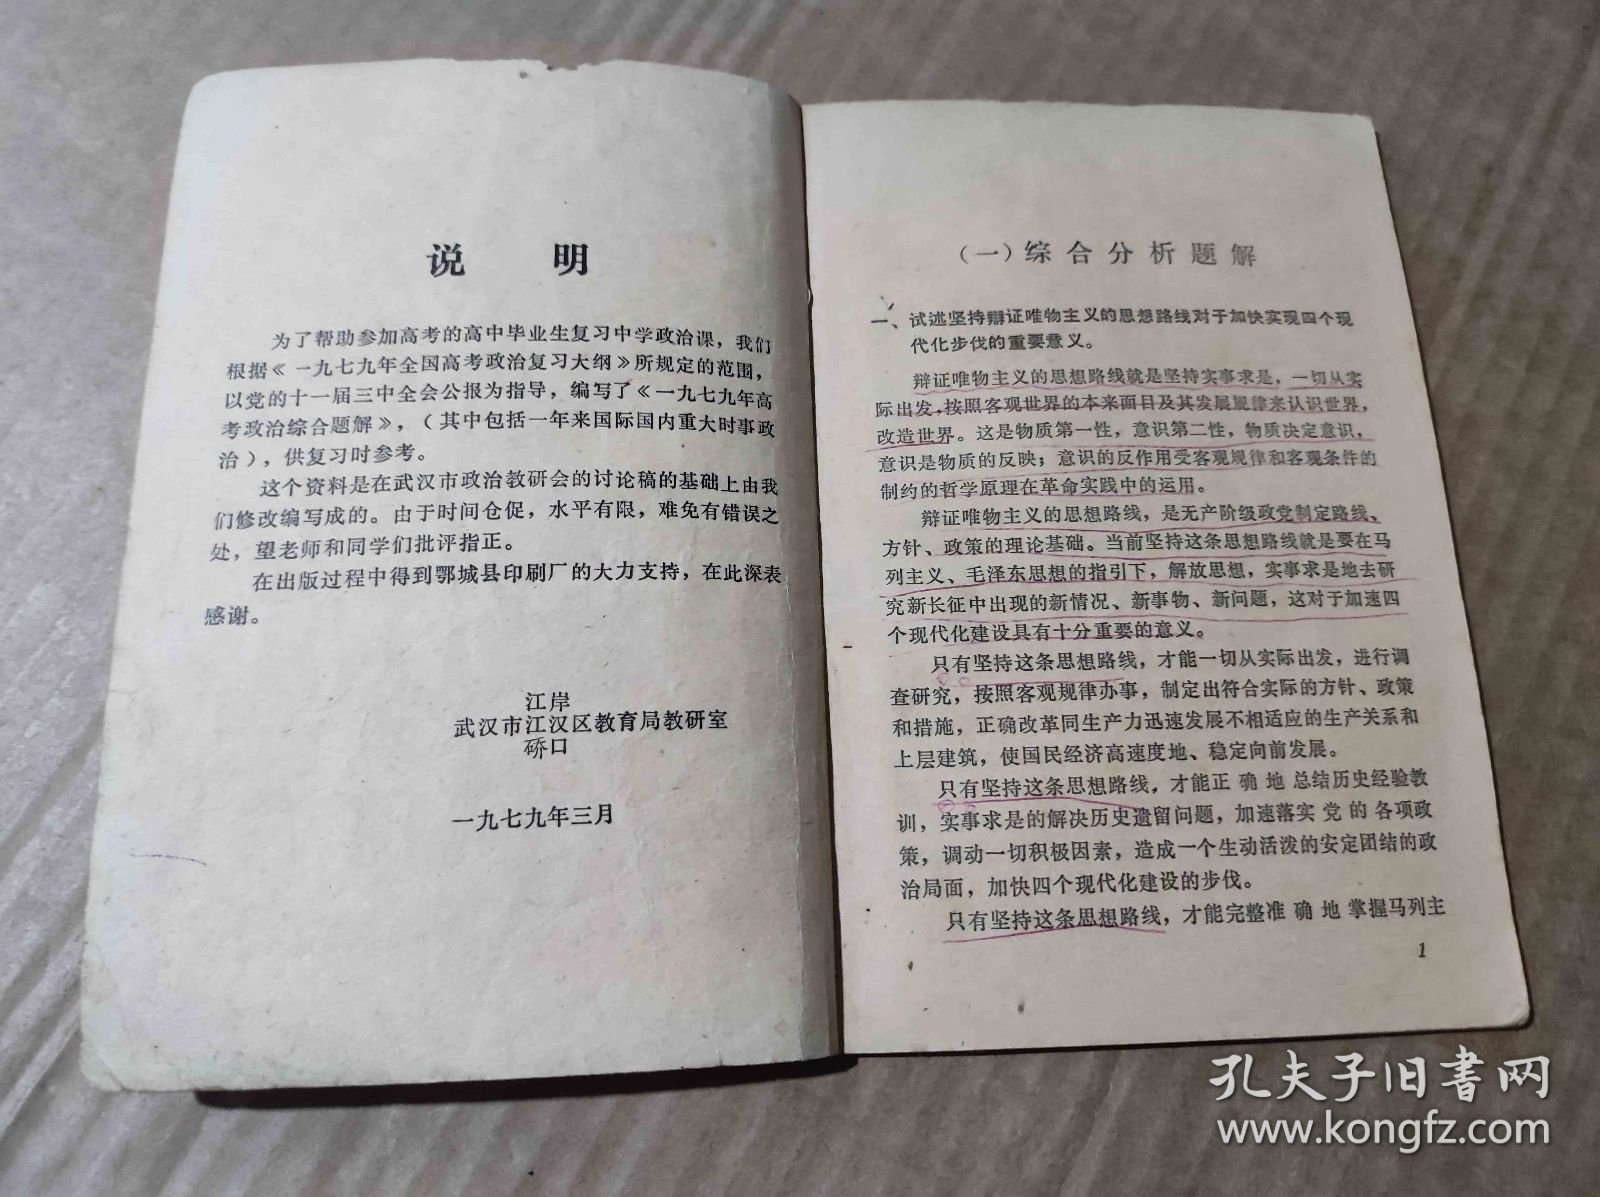 说 明
为了帮助参加高考的高中毕业生复习中学政治课，我们
根据《一九七九年全国高考政治复习大纲》所规定的范围，
以党的十一届三中全会公报为指导，编写了《一九七九年高
考政治综合题解》，（其中包括一年来国际国内重大时事政
治），供复习时参考。
这个资料是在武汉市政治教研会的讨论稿的基础上由我
们修改编写成的。由于时间仓促，水平有限，难免有错误之
处，望老师和同学们批评指正。
在出版过程中得到鄂城县印刷厂的大力支持，在此深表
感谢。
江岸
武汉市江汉区教育局教研室
硚口
一九七九年三月
（一）综合分析题解
一、试述坚持辩证唯物主义的思想路线对于加快实现四个现
代化步伐的重要意义。
辩证唯物主义的思想路线就是坚持实事求是，一切从实
际出发，按照客观世界的本来面目及其发展规律来认识世界，
改造世界。这是物质第一性，意识第二性，物质决定意识，
意识是物质的反映；意识的反作用受客观规律和客观条件的
制约的哲学原理在革命实践中的运用。
辩证唯物主义的思想路线，是无产阶级政党制定路线、
方针、政策的理论基础。当前坚持这条思想路线就是要在马
列主义、毛泽东思想的指引下，解放思想，实事求是地去研
究新长征中出现的新情况、新事物、新问题，这对于加速四
个现代化建设具有十分重要的意义。
只有坚持这条思想路线，才能一切从实际出发，进行调
查研究，按照客观规律办事，制定出符合实际的方针、政策
和措施，正确改革同生产力迅速发展不相适应的生产关系和
上层建筑，使国民经济高速度地、稳定向前发展。
只有坚持这条思想路线，才能正确地总结历史经验教
训，实事求是的解决历史遗留问题，加速落实党的各项政
策，调动一切积极因素，造成一个生动活泼的安定团结的政
治局面，加快四个现代化建设的步伐。
只有坚持这条思想路线，才能完整准确地掌握马列主
1
孔夫子旧书网
www.kongfz.com